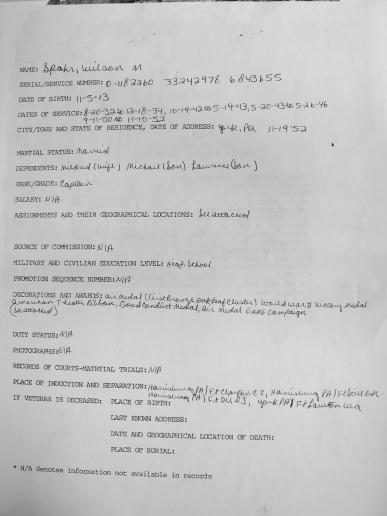 NAME: Spahr, Wilson M
SERIAL/SERVICE NUMBER: O-1182260 33242978 6843655
DATE OF BIRTH: 11-5-13
DATES OF SERVICE: 8-20-32 to 12-18-34, 10-19-42 to 5-19-43, 5-20-43 to 5-26-46
9-11-50 to 11-10-52
CITY/TOWN AND STATE OF RESIDENCE, DATE OF ADDRESS: York, Pa 11-19-52
MARTIAL STATUS: Married
DEPENDENTS: Mildred (wife) Michael (Son) Lawrence (Son)
RANK/GRADE: Captain
SALARY: N/A
ASSIGNMENTS AND THEIR GEOGRAPHICAL LOCATIONS: See attached
SOURCE OF COMMISSION: N/A
MILITARY AND CIVILIAN EDUCATION LEVEL: High School
PROMOTION SEQUENCE NUMBER: N/A
DECORATIONS AND AWARDS: Air Medal (First Bronze Oak Leaf Cluster) World War II Victory Medal
American Theater Ribbon, Good Conduct Medal, Air Medal EAME Campaign
(see attached)
DUTY STATUS: N/A
PHOTOGRAPHS: N/A
RECORDS OF COURTS-MATRTIAL TRIALS: N/A
PLACE OF INDUCTION AND SEPARATION: Harrisburg PA/Ft Clayton CZ, Harrisburg PA/Ft Sill OK
Harrisburg PA/Ft Dix NJ, York PA/Ft Lawton Wa
IF VETERAN IS DECEASED: PLACE OF BIRTH:
LAST KNOWN ADDRESS:
DATE AND GEOGRAPHICAL LOCATION OF DEATH:
PLACE OF BURIAL:
* N/A denotes information not available in records